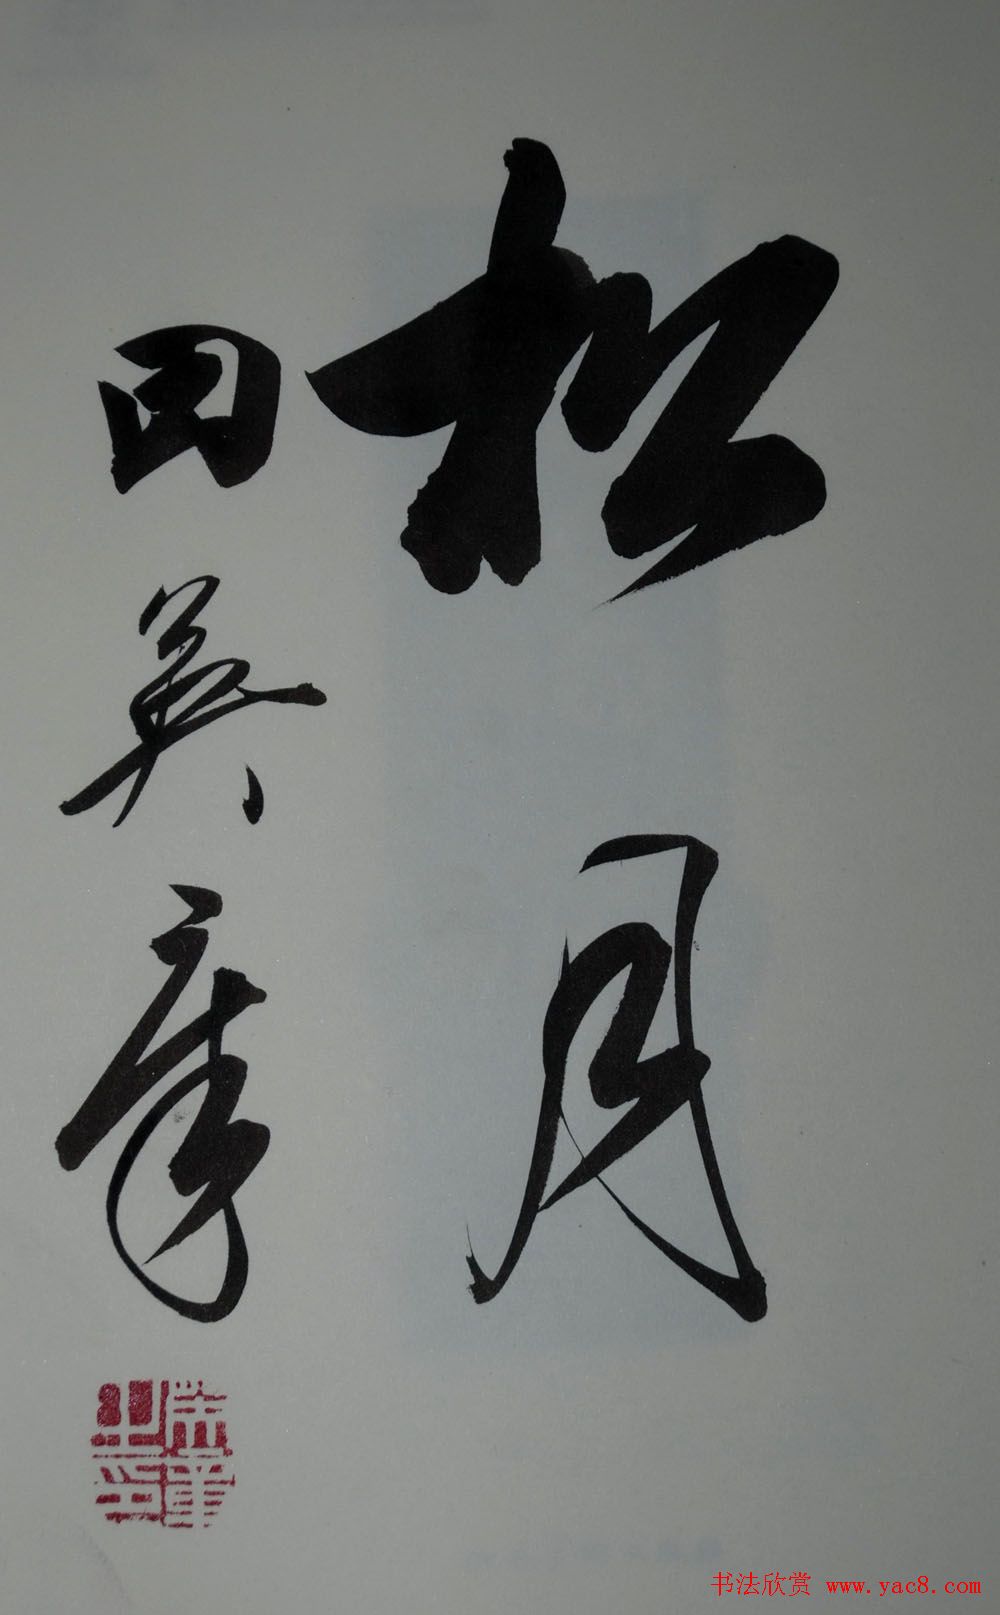 松月
田英章
书法欣赏 www.yac8.com